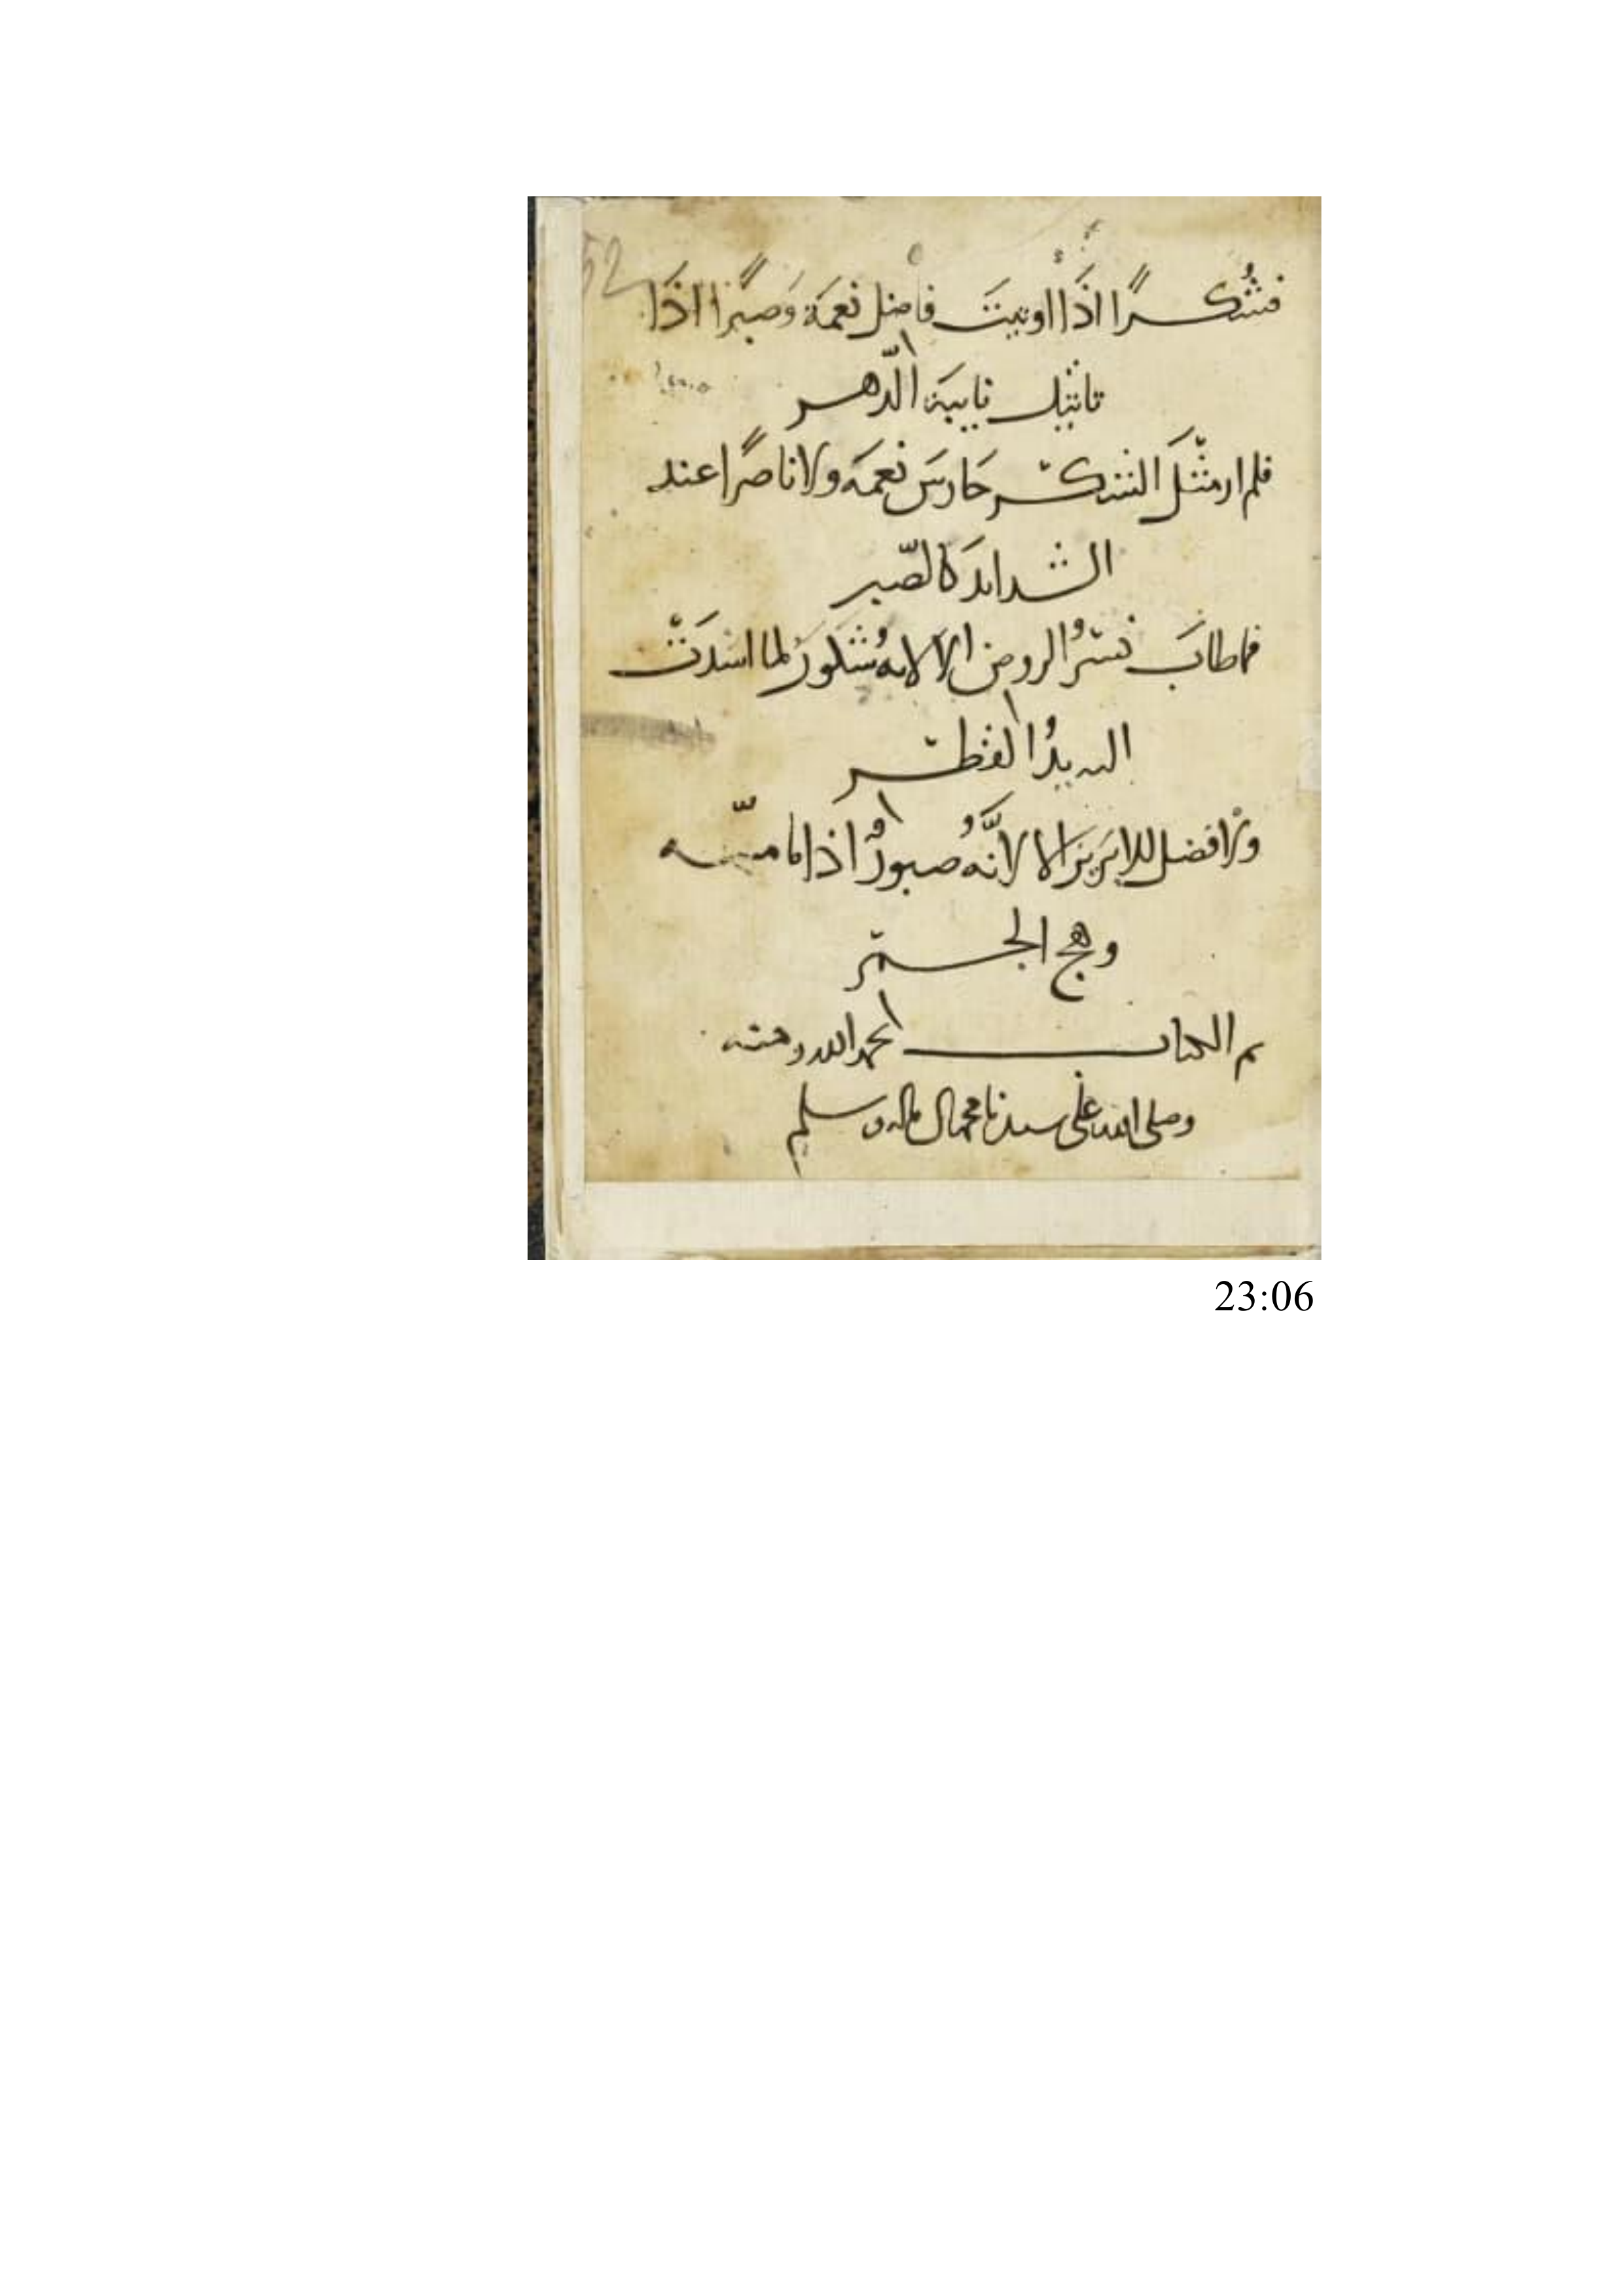 52
فشُكرًا اذَا اوتيتَ فاضل نعمَة وَصبرًا اذَا
نابيَة الدّهر
فلم ار مثلَ الشكر حَارسَ نعمَه ولا ناصرًا عند
الشدايدَ كالصّبر
فما طابَ نشرُ الروض الا لانه شكورٌ لما اسْدَتْ
اليه يدُ القطر
افضل الابريز الا لانَّهُ صبورٌ اذا ما مسّه
وهج الجمر
تم الكتاب بحمد الله ومنه
وصلى الله على سيدنا محمد واله وسلم
23:06